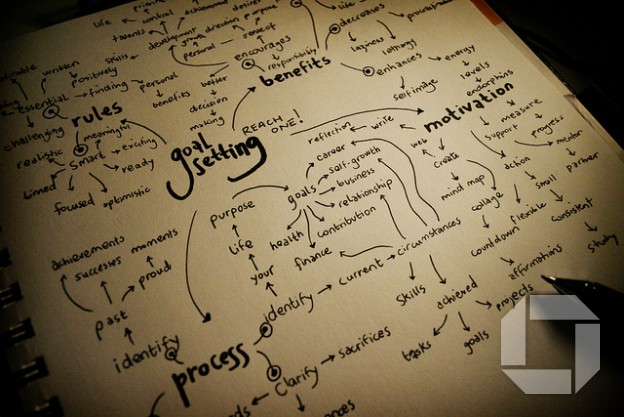 life
control
talents
development
direction
purpose
personal
sense of
decreases
procrastination
laziness
lethargy
encourages
responsibility
enhances
energy
levels
endorphins
self image
benefits
better
decision
making
written
positively
skills
essential
finding
personal
benefits
rules
challenging
meaningful
realistic
smart
exciting
ready
timed
focused
optimistic
goal
setting
REACH
ONE!
motivation
reflection
write
web
create
mind map
collage
countdown
support
measure
progress
mentor
partner
action
small
flexible
consistent
study
affirmations
career
self-growth
business
goals
relationship
contribution
health
finance
purpose
life
your
identify
current
circumstances
skills
achieved
projects
tasks
goals
achievements
successes
moments
proud
past
identify
process
clarify
sacrifices